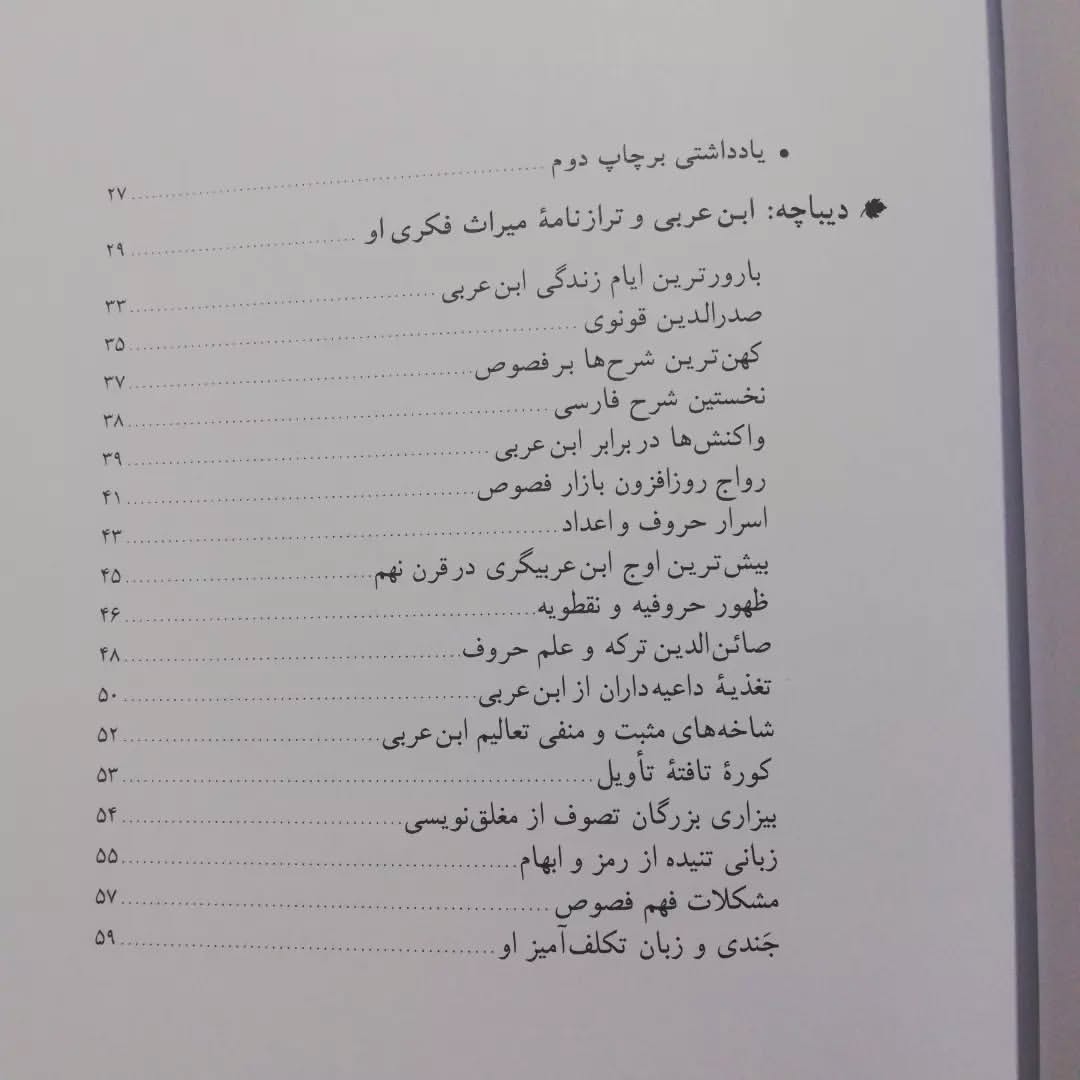 • یادداشتی بر چاپ دوم ........ ۲۷
دیباچه: ابن عربی و ترازنامهٔ میراث فکری او ........ ۲۹
بارورترین ایام زندگی ابن عربی ........ ۳۳
صدرالدین قونوی ........ ۳۵
کهن‌ترین شرح‌ها بر فصوص ........ ۳۷
نخستین شرح فارسی ........ ۳۸
واکنش‌ها در برابر ابن عربی ........ ۳۹
رواج روزافزون بازار فصوص ........ ۴۱
اسرار حروف و اعداد ........ ۴۳
بیش‌ترین اوج ابن عربیگری در قرن نهم ........ ۴۵
ظهور حروفیه و نقطویه ........ ۴۶
صائن‌الدین ترکه و علم حروف ........ ۴۸
تغذیهٔ داعیه‌داران از ابن عربی ........ ۵۰
شاخه‌های مثبت و منفی تعالیم ابن عربی ........ ۵۲
کورهٔ تافتهٔ تأویل ........ ۵۳
بیزاری بزرگان تصوف از مغلق‌نویسی ........ ۵۴
زبانی تنیده از رمز و ابهام ........ ۵۵
مشکلات فهم فصوص ........ ۵۷
جَندی و زبان تکلف‌آمیز او ........ ۵۹